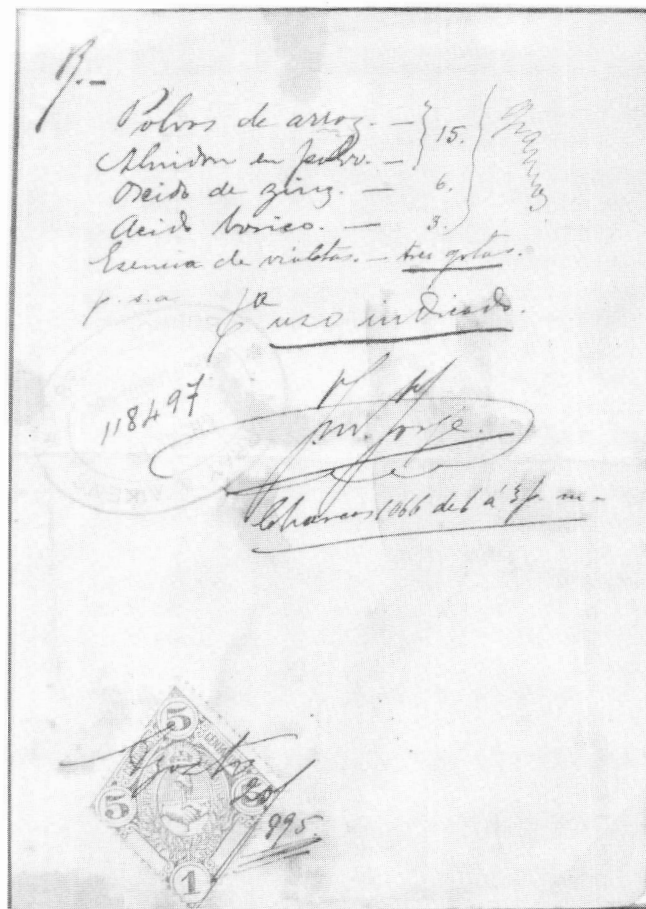 R.-
Polvos de arroz. — } 15. } gramos
Almidon en polvo. —
Oxido de zinz. — 6.
Acido borico. — 3.
Esencia de violetas. — tres gotas.
p.s.a.
pa uso indicado.
118497
M. Jorje.
Charcas 1066 de 1 á 3 p. m-
5 5
Agosto 20/
895.
1